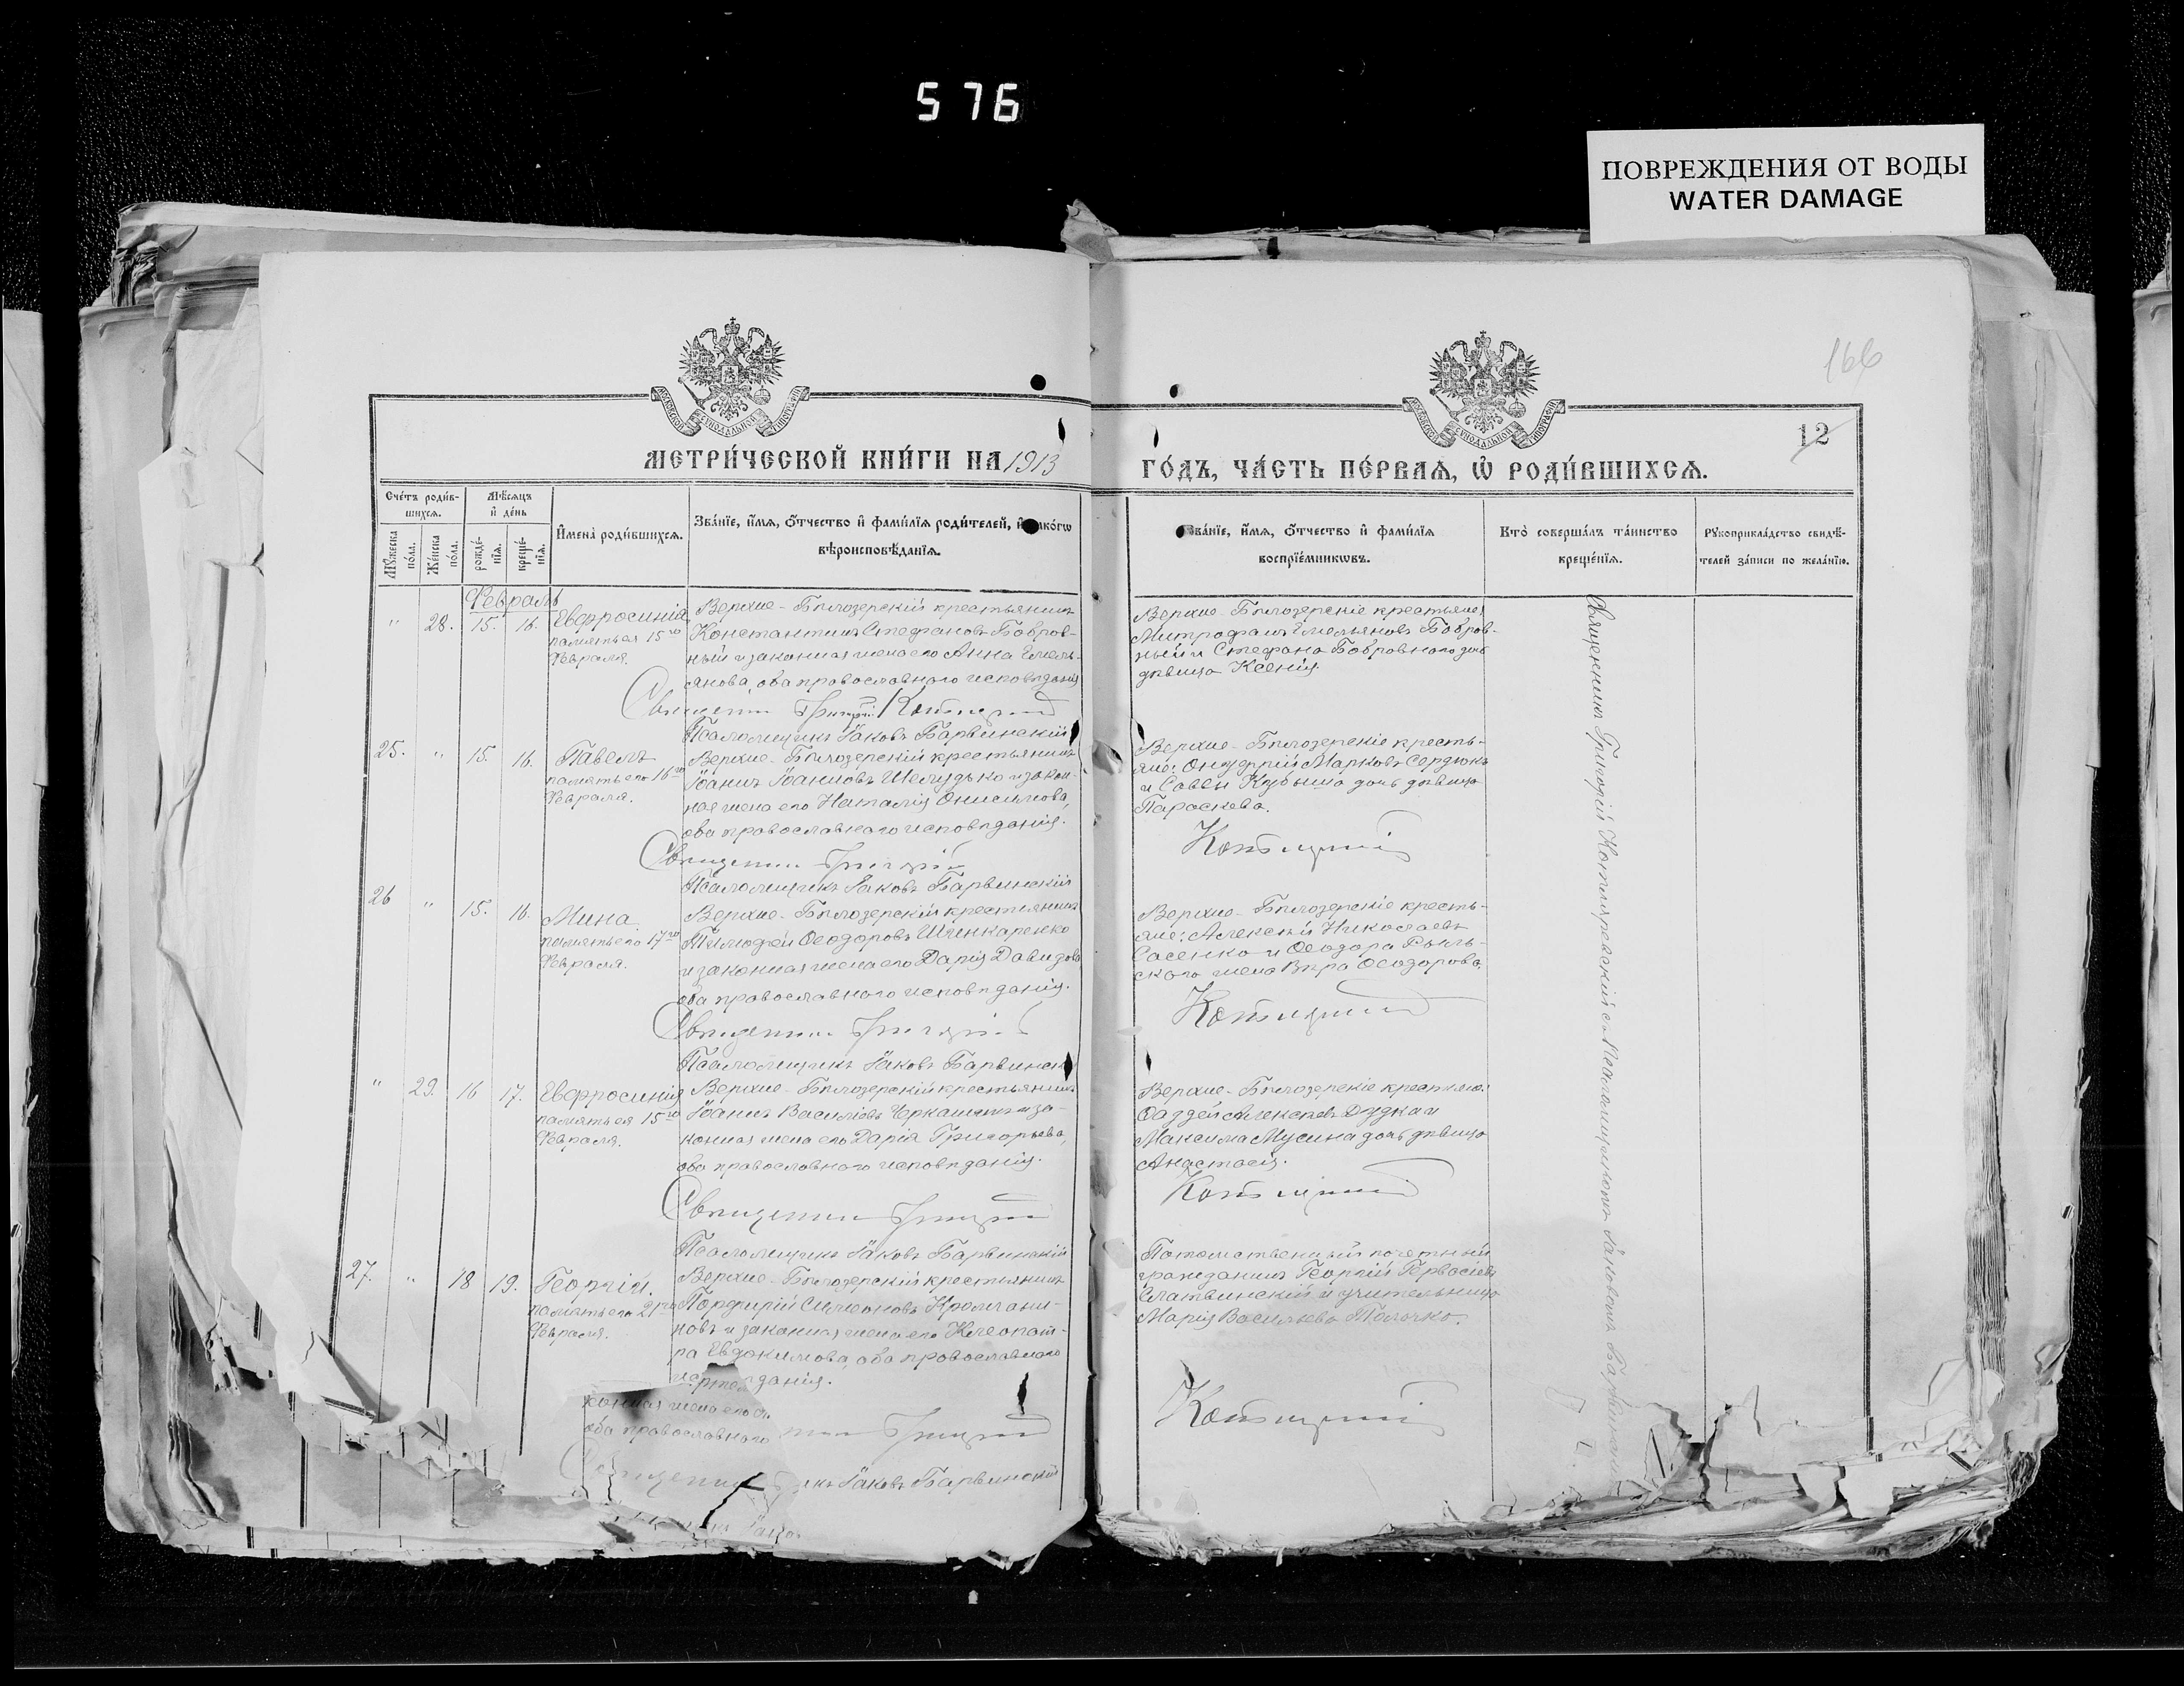 576
ПОВРЕЖДЕНИЯ ОТ ВОДЫ
WATER DAMAGE
166
12
МОСКОВСКОЙ СѴНОДАЛЬНОЙ ТИПОГРАФІИ
МОСКОВСКОЙ СѴНОДАЛЬНОЙ ТИПОГРАФІИ
МЕТРИ́ЧЕСКОЙ КНИ́ГИ НА 1913
ГО́ДЪ, ЧА́СТЬ ПЕ́РВАѦ, Ѿ РОДИ́ВШИХСѦ.
Счетъ роди́вшихсѧ.
Мѣ́сѧцъ и де́нь
Мꙋжеска по́ла.
Же́нска по́ла.
рожде́нїѧ.
креще́нїѧ.
И҆мена̀ роди́вшихсѧ.
Зва́нїе, и҆́мѧ, ѻ҆́тчество и҆ фами́лїѧ роди́телей, и҆ какогѡ
вѣроисповѣ́данїѧ.
Зва́нїе, и҆́мѧ, ѻ҆́тчество и҆ фами́лїѧ
воспрїе́мникѡвъ.
Кто̀ соверша́лъ та́инство
креще́нїѧ.
Рꙋкоприкла́дство свидѣ́-
телей за́писи по жела́нїю.
Февраль
" 28. 15. 16.
Евфросинія
память ея 15го
Февраля.
Верхне-Бѣлозерскій крестьянинъ
Константинъ Стефановъ Бобров-
ный и законная жена его Анна Емель-
янова, оба православнаго исповѣданія
Священник Григорій Котляревскій
Псаломщикъ Іаковъ Барвинскій
Верхне-Бѣлозерскіе крестьяне:
Митрофанъ Емельяновъ Бобров-
ный и Стефана Бобровнаго дочь
дѣвица Ксенія.
25. " 15. 16.
Павелъ
память его 16го
Февраля.
Верхне-Бѣлозерскій крестьянинъ
Іоаннъ Іоанновъ Шелудько и закон-
ная жена его Наталія Онисимова,
оба православнаго исповѣданія.
Священник Григорій
Псаломщикъ Іаковъ Барвинскій
Верхне-Бѣлозерскіе кресть-
яне: Онуфрій Марковъ Сердюкъ
и Саввы Кубыша дочь дѣвица
Параскева.
Котляревскій
26 " 15. 16.
Мина.
память его 17го
Февраля.
Верхне-Бѣлозерскій крестьянинъ
Тимофей Ѳеодоровъ Шинкаренко
и законная жена его Дарія Давидова,
оба православнаго исповѣданія.
Священник Григорій
Псаломщикъ Іаковъ Барвинскій
Верхне-Бѣлозерскіе кресть-
яне: Алексѣй Николаевъ
Сасенко и Ѳеодора Рыль-
скаго жена Вѣра Ѳеодорова.
Котляревскій
" 29. 16 17.
Евфросинія
память ея 15го
Февраля.
Верхне-Бѣлозерскій крестьянинъ
Іоаннъ Василіевъ Черкашинъ и за-
конная жена его Дарія Григорьева,
оба православнаго исповѣданія.
Священник Григорій
Псаломщикъ Іаковъ Барвинскій
Верхне-Бѣлозерскіе крестьяне:
Ѳаддей Алексѣевъ Дудка и
Максима Мусина дочь дѣвица
Анастасія.
Котляревскій
27. " 18 19.
Георгій.
память его 21го
Февраля.
Верхне-Бѣлозерскій крестьянинъ
Порфирій Симеоновъ Кромчани-
новъ и законная жена его Клеопат-
ра Евдокимова, оба православнаго
исповѣданія.
Григорій
Іаковъ Барвинскій
Потомственный почетный
гражданинъ Георгій Гервасіевъ
Слатвинскій и учительница
Марія Васильева Толочко.
Котляревскій
конная жена его
оба православнаго
Священник
Священникъ Григорій Котляревскій съ Псаломщикомъ Іаковомъ Барвинскимъ